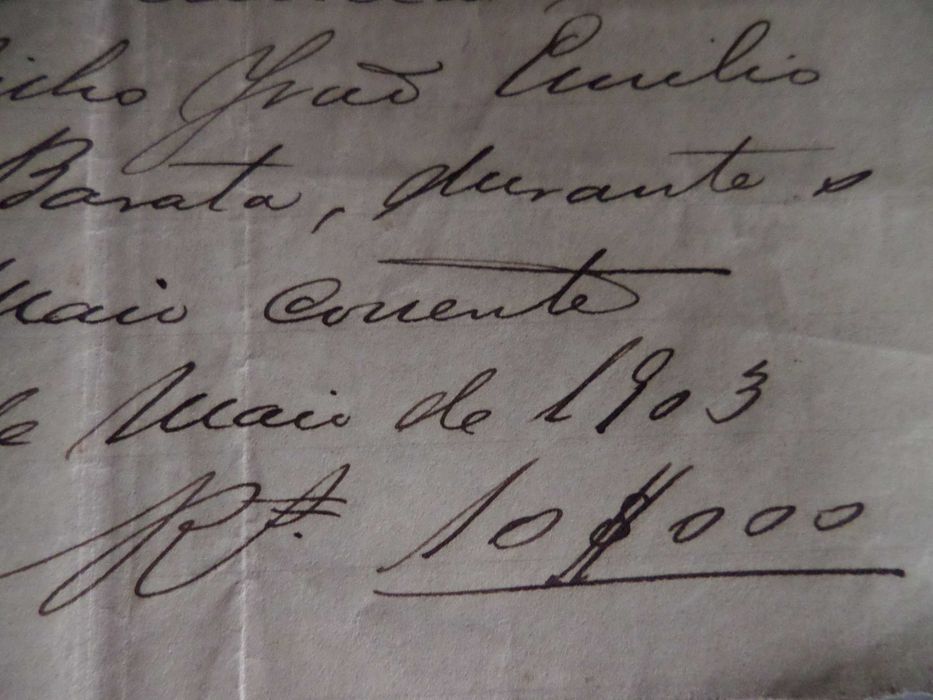 João Emilio
Barata, durante o
Maio corrente
de Maio de 1903
Rs. 10$000